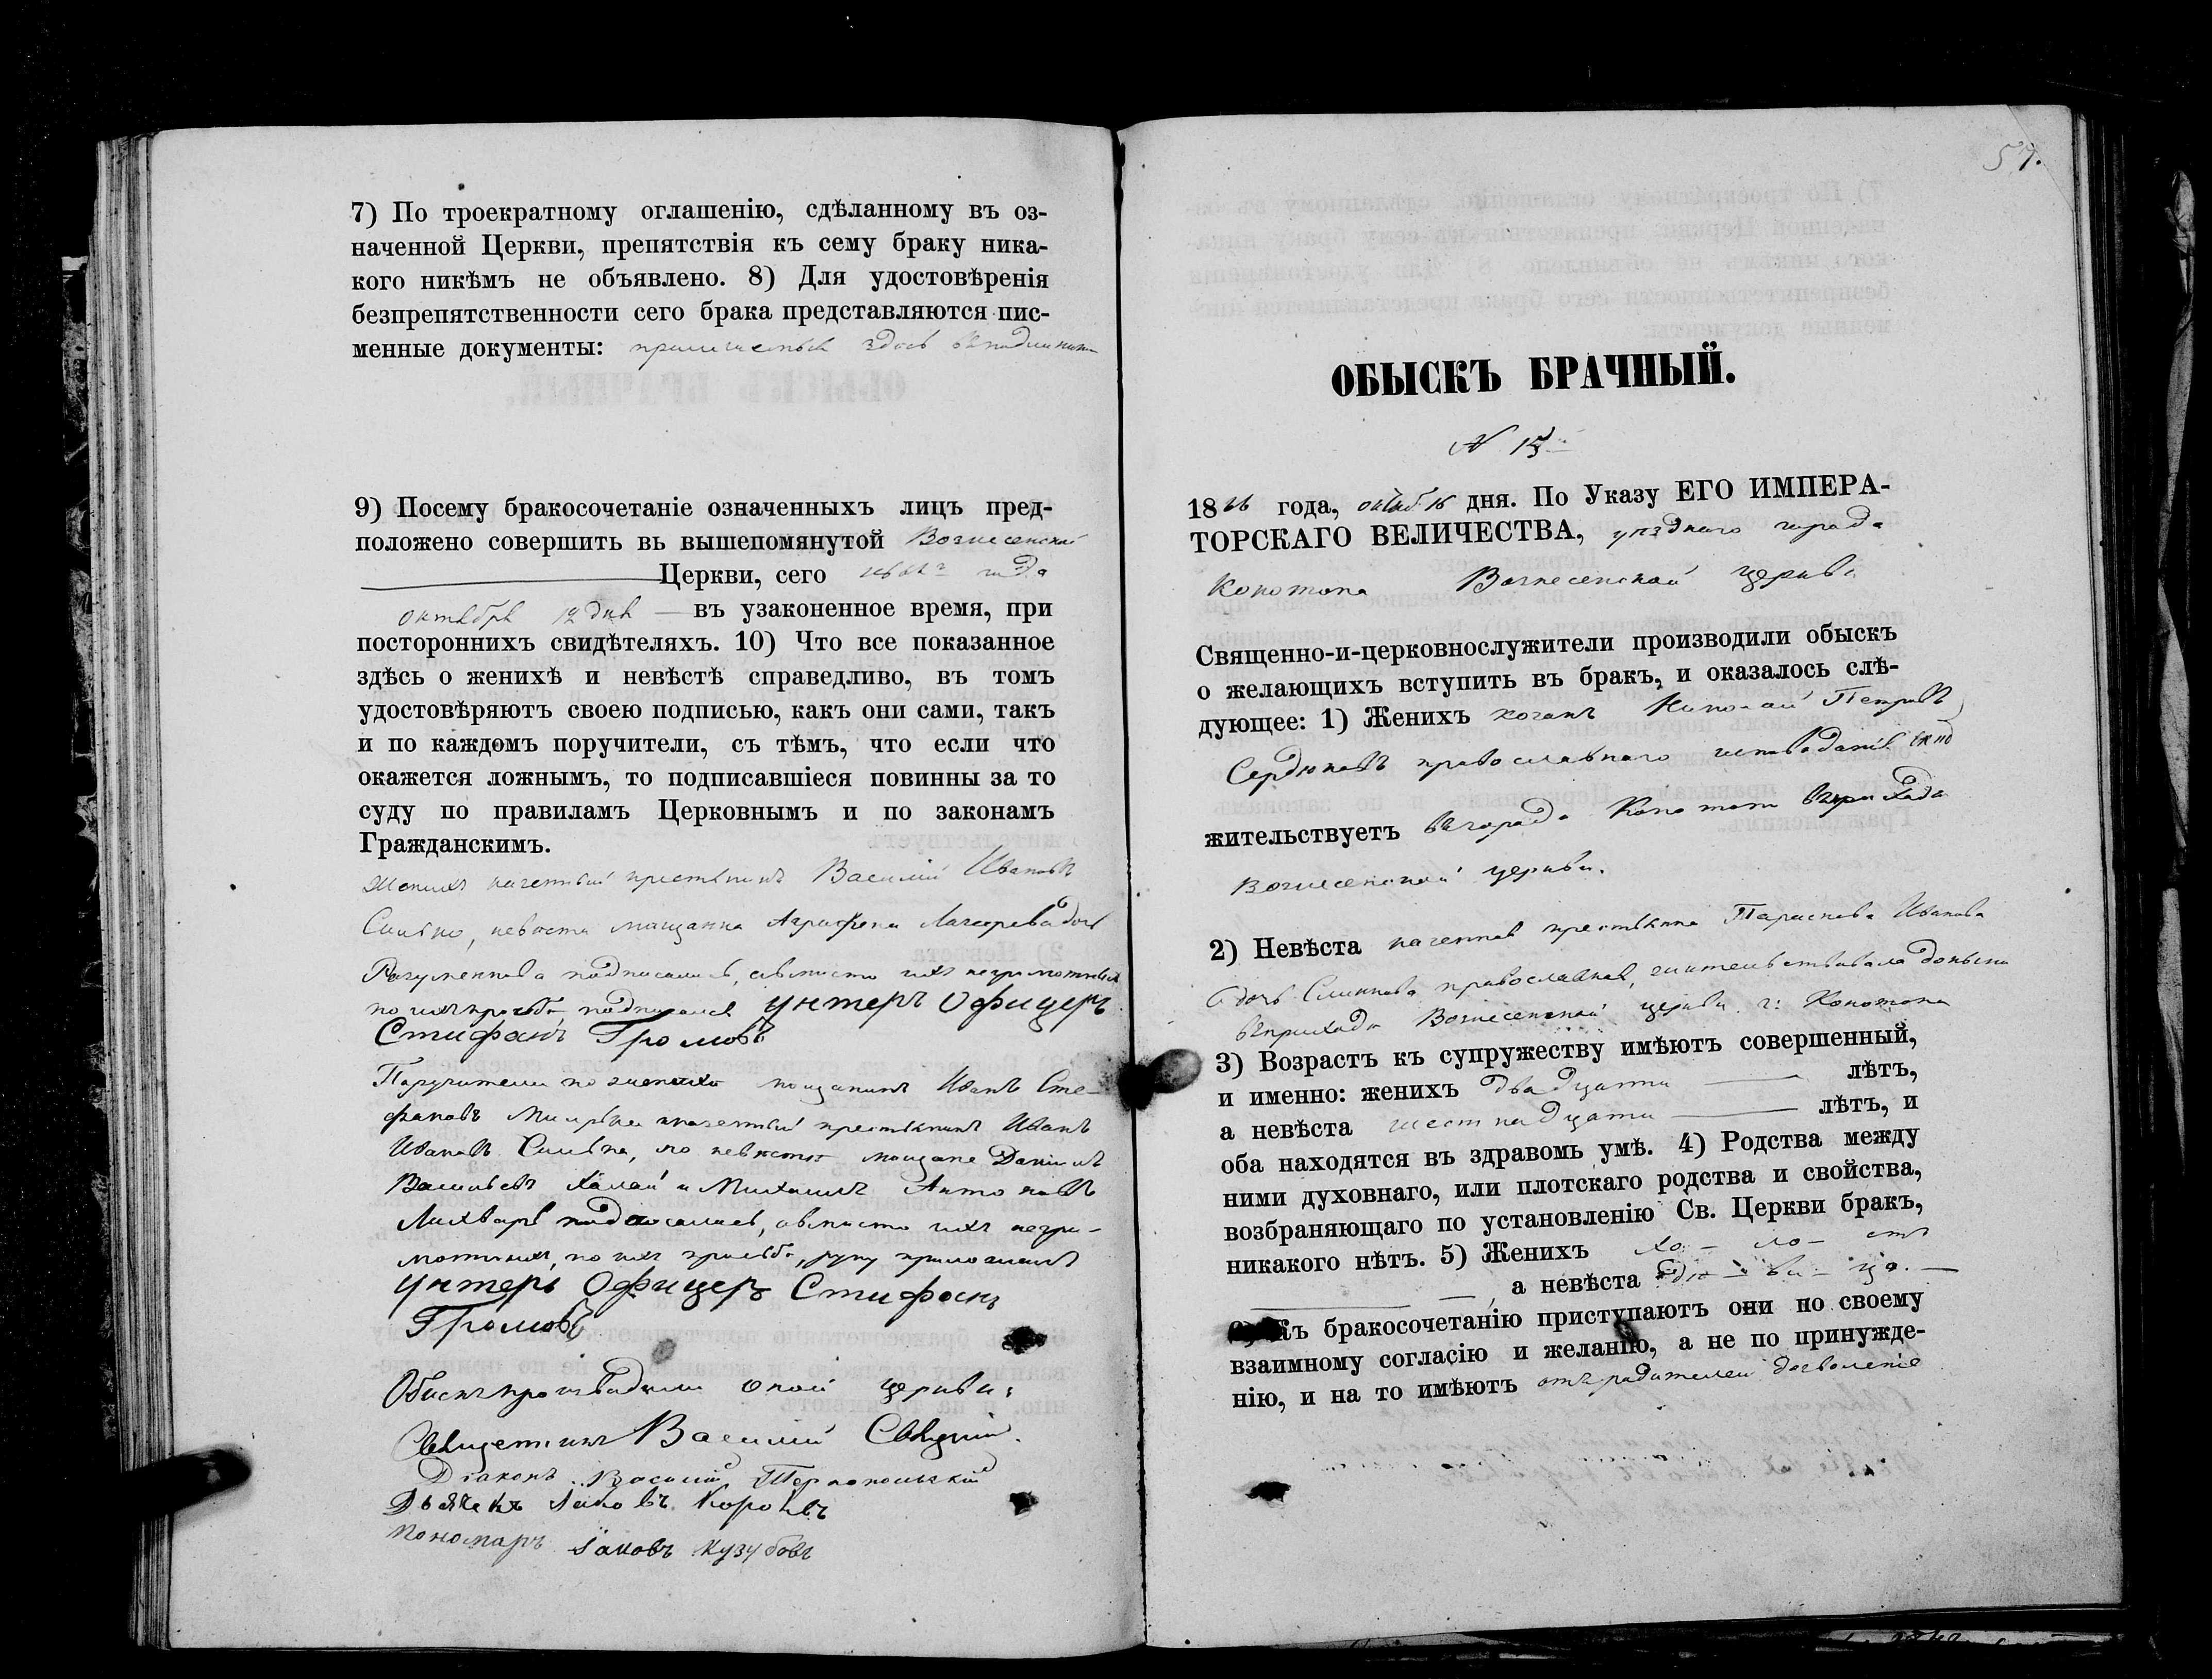 7) По троекратному оглашенію, сдѣланному въ оз-
наченной Церкви, препятствія къ сему браку ника-
кого никѣмъ не объявлено. 8) Для удостовѣренія
безпрепятственности сего брака представляются пис-
менные документы: здѣсь
9) Посему бракосочетаніе означенныхъ лицъ пред-
положено совершить вь вышепомянутой Вознесенской
Церкви, сего года
октября 12 дня въ узаконенное время, при
постороннихъ свидѣтеляхъ. 10) Что все показанное
здѣсь о женихѣ и невѣстѣ справедливо, въ томъ
удостовѣряютъ своею подписью, какъ они сами, такъ
и по каждомъ поручители, съ тѣмъ, что если что
окажется ложнымъ, то подписавшіеся повинны за то
суду по правиламъ Церковнымъ и по законамъ
Гражданскимъ.
Женихъ казенный крестьянинъ Василій Ивановъ
невѣста мѣщанка Агрифена Лазарева дочь
Разуменкова подписались, а вмѣсто ихъ неграмотныхъ
по ихъ прозьбѣ подписался унтеръ Офицеръ
Стифанъ Громовъ
Поручители по женихѣ мѣщанинъ Иванъ Сте-
фановъ казенный крестьянинъ Иванъ
Ивановъ по невѣстѣ мѣщане Даніилъ
Васильевъ Халай и Михаилъ Антоновъ
Лихваръ подписались, а вмѣсто ихъ негра-
мотныхъ, по ихъ прозьбѣ, руку приложилъ
унтеръ Офицеръ Стифанъ
Громовъ
Обыскъ производили оной церкви:
Священникъ Василій
Діаконъ Василій Тарнопольскій
Дьячекъ Іаковъ
Пономарь Іаковъ Кузубовъ
57.
ОБЫСКЪ БРАЧНЫЙ.
N 15
1866 года, октяб 16 дня. По Указу ЕГО ИМПЕРА-
ТОРСКАГО ВЕЛИЧЕСТВА, уѣзднаго города
Конотопа Вознесенской церкви
Священно-и-церковнослужители производили обыскъ
о желающихъ вступить въ бракъ, и оказалось слѣ-
дующее: 1) Женихъ козакъ Николай Петровъ
Сердюковъ православнаго исповѣданія
жительствуетъ въ городѣ Конотопѣ въ приходѣ
Вознесенской церкви.
2) Невѣста казенная крестьянка Параскева Иванова
дочь православная, жительствовала донынѣ
въ приходѣ Вознесенской церкви г: Конотопа
3) Возрастъ къ супружеству имѣютъ совершенный,
и именно: женихъ двадцати лѣтъ,
а невѣста шестнадцати лѣтъ, и
оба находятся въ здравомъ умѣ. 4) Родства между
ними духовнаго, или плотскаго родства и свойства,
возбраняющаго по установленію Св. Церкви бракъ,
никакого нѣтъ. 5) Женихъ хо – ло – стъ
, а невѣста дѣ – ви – ца. –
6) Къ бракосочетанію приступаютъ они по своему
взаимному согласію и желанію, а не по принужде-
нію, и на то имѣютъ отъ родителей дозволеніе